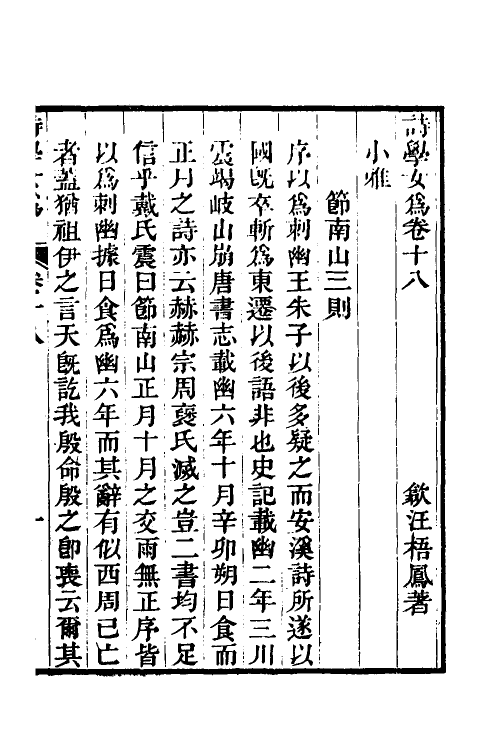 詩學女爲卷十八
歙汪梧鳳著
小雅
節南山三則
序以爲刺幽王朱子以後多疑之而安溪詩所遂以
國旣卒斬爲東遷以後語非也史記載幽二年三川
震竭岐山崩唐書志載幽六年十月辛卯朔日食而
正月之詩亦云赫赫宗周褒氏滅之豈二書均不足
信乎戴氏震曰節南山正月十月之交雨無正序皆
以爲刺幽據日食爲幽六年而其辭有似西周已亡
者蓋猶祖伊之言天旣訖我殷命殷之卽喪云爾其
詩學女爲
卷十八
一